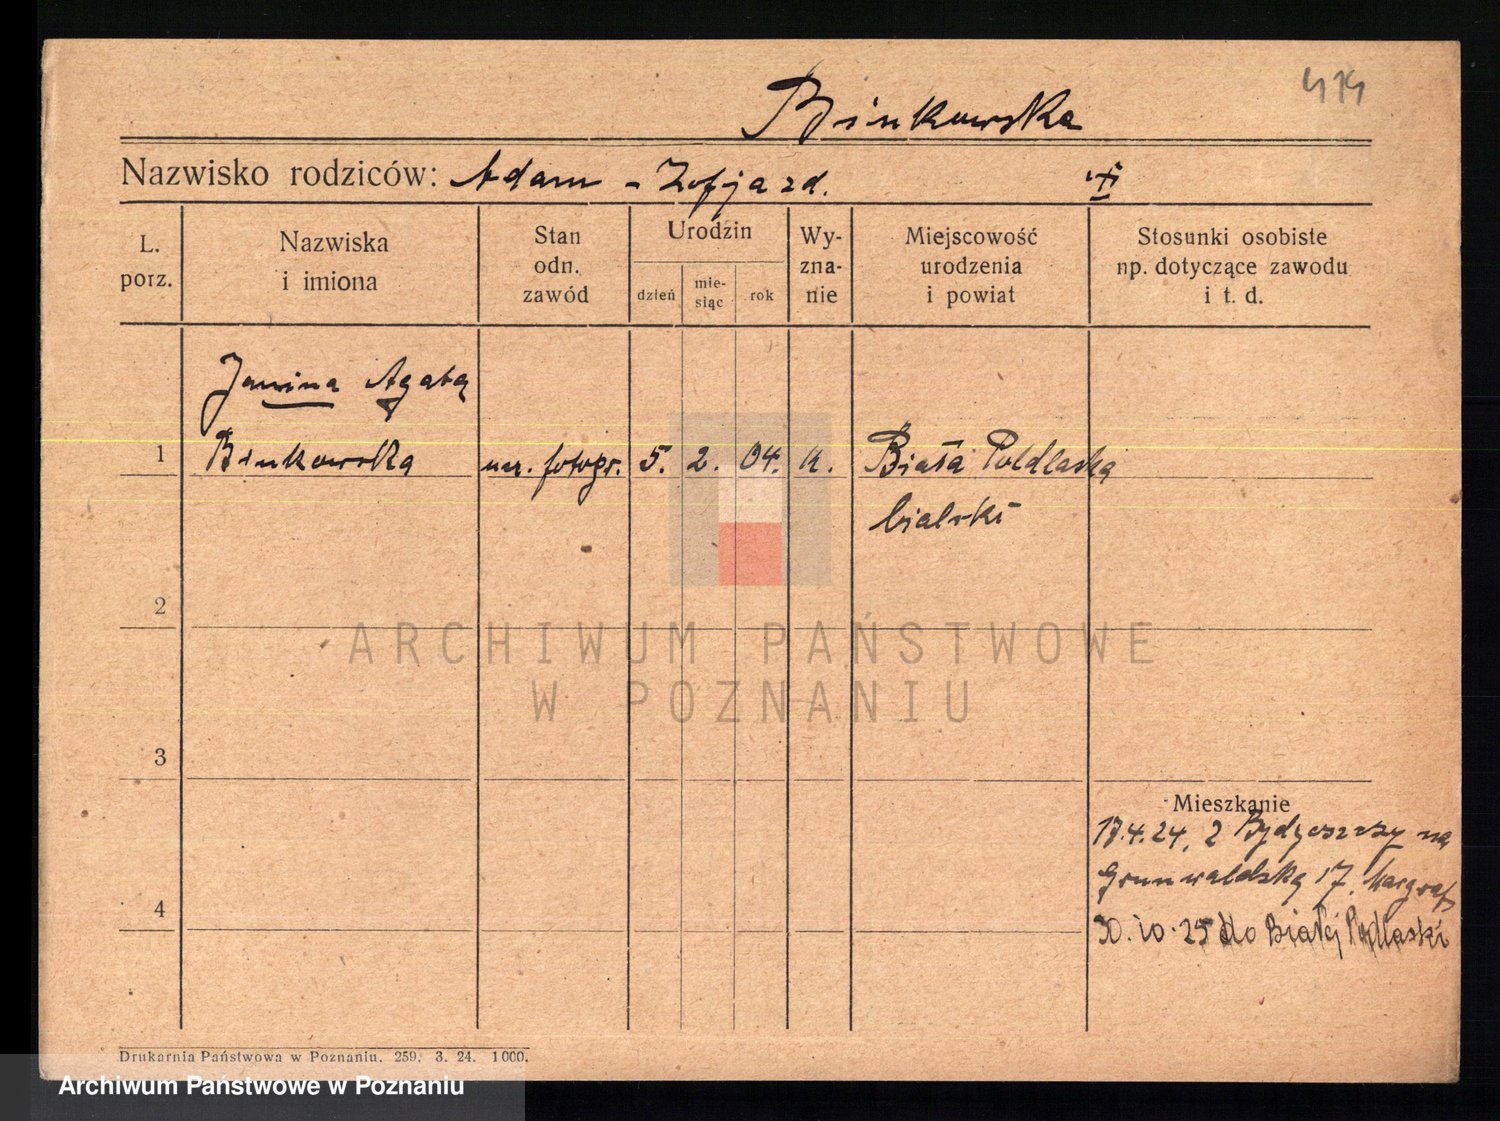 Binkowska
414
Nazwisko rodziców: Adam - Zofja zd.
L. porz.
Nazwiska i imiona
Stan odn. zawód
Urodzin
dzień
mie-siąc
rok
Wy-zna-nie
Miejscowość urodzenia i powiat
Stosunki osobiste np. dotyczące zawodu i t. d.
Janina Agata
1 Binkowska ucz. fotogr. 5. 2. 04. k. Biała Podlaska
bialski
2
3
4
Mieszkanie
17.4.24, z Bydgoszczy na
Grunwaldzką 17
30.10.25 do Białej Podlaski
ARCHIWUM PAŃSTWOWE
W POZNANIU
Drukarnia Państwowa w Poznaniu. 259. 3. 24. 1000.
Archiwum Państwowe w Poznaniu